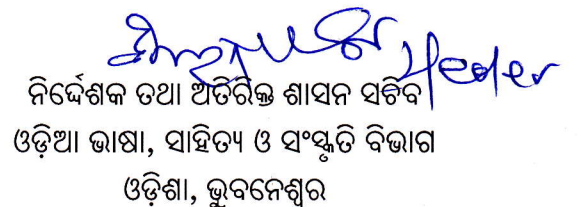 ନିର୍ଦ୍ଦେଶକ ତଥା ଅତିରିକ୍ତ ଶାସନ ସଚିବ
ଓଡ଼ିଆ ଭାଷା, ସାହିତ୍ୟ ଓ ସଂସ୍କୃତି ବିଭାଗ
ଓଡ଼ିଶା, ଭୁବନେଶ୍ୱର